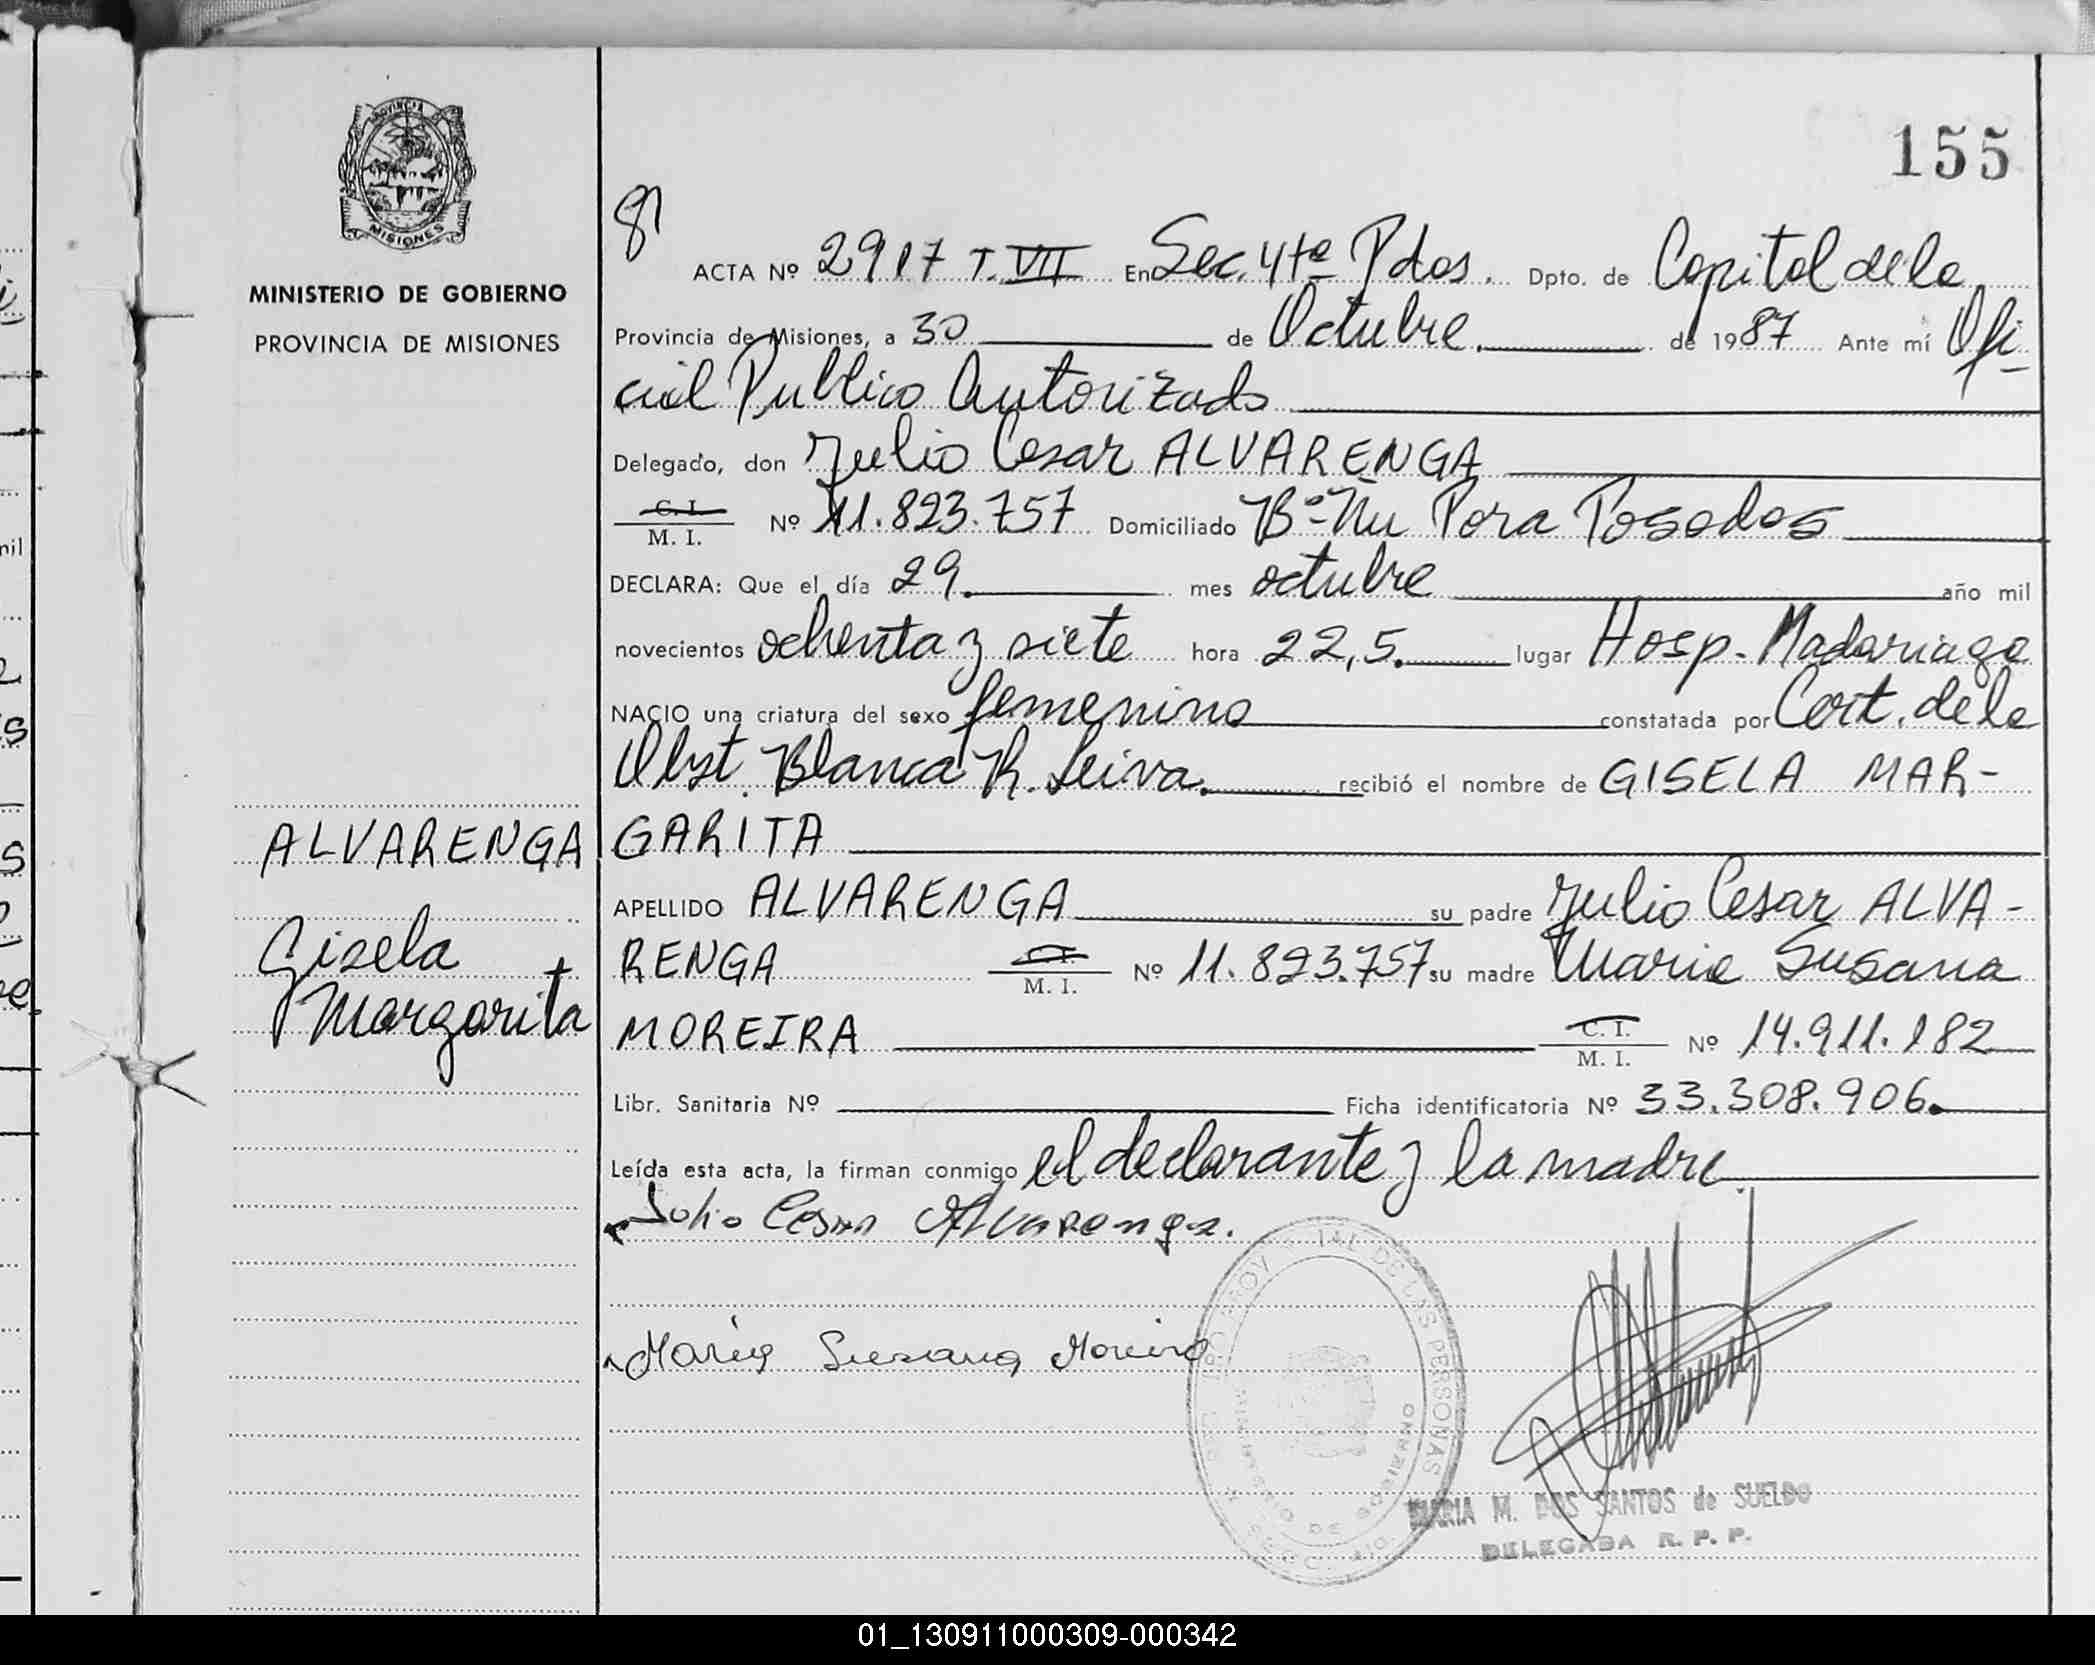 155
PROVINCIA
MISIONES
MINISTERIO DE GOBIERNO
PROVINCIA DE MISIONES
ALVARENGA
Gisela
Margarita
ACTA Nº 2917 T. VII En Sec. 4ta Pdas. Dpto. de Capital de la
Provincia de Misiones, a 30 de Octubre de 1987 Ante mí Ofi-
cial Publico Autorizado
Delegado, don Julio Cesar ALVARENGA
C. I.
M. I. Nº 11.823.757 Domiciliado Bº Ñu Pora Posadas
DECLARA: Que el día 29 mes octubre año mil
novecientos ochenta y siete hora 22,5 lugar Hosp. Madariaga
NACIO una criatura del sexo femenino constatada por Cert. de la
Obst. Blanca R. Leiva. recibió el nombre de GISELA MAR-
GARITA
APELLIDO ALVARENGA su padre Julio Cesar ALVA-
RENGA M. I. Nº 11.823.757 su madre Maria Susana
MOREIRA C. I. M. I. Nº 14.911.182
Libr. Sanitaria Nº Ficha identificatoria Nº 33.308.906.
Leída esta acta, la firman conmigo el declarante y la madre
Julio Cesar Alvarenga.
Maria Susana Moreira
MARIA M. DOS SANTOS de SUELDO
DELEGADA R. P. P.
01_130911000309-000342